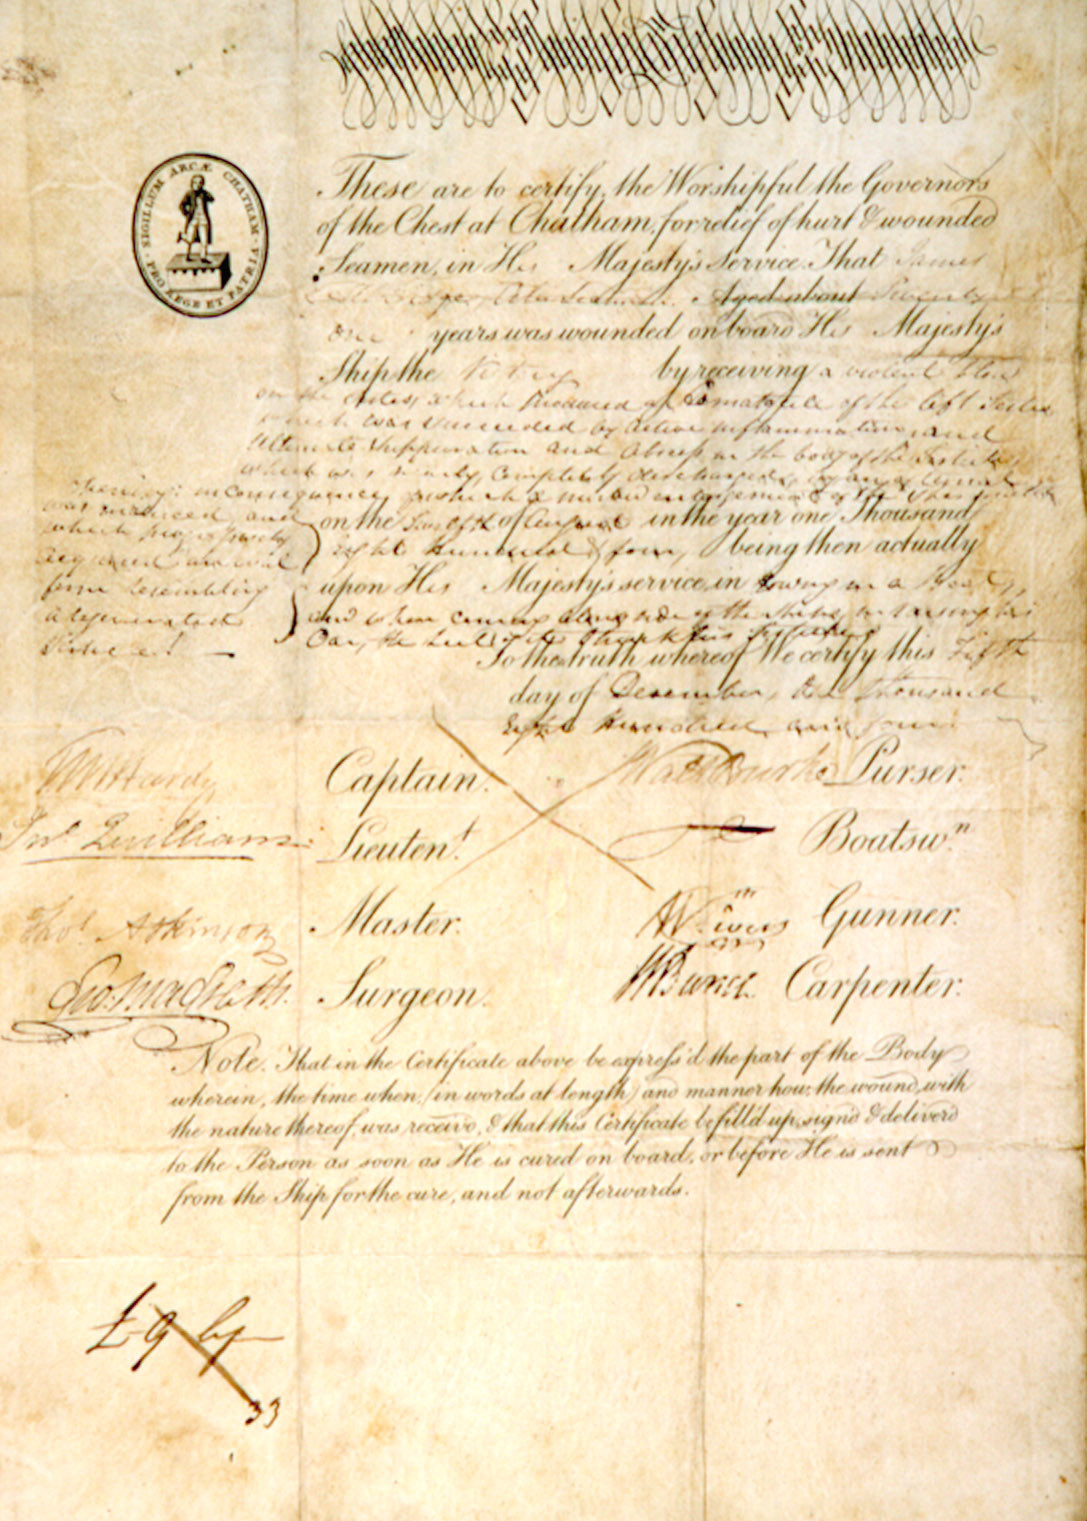 SIGILLUM ARCÆ CHATHAM · PRO REGE ET PATRIA ·
These are to certify, the Worshipful the Governors
of the Chest at Chatham, for relief of hurt & wounded
Seamen, in His Majesty's Service. That James
Aged about Twenty
One years was wounded on board His Majesty's
Ship the Victory by receiving a violent blow
on the which produced of the left
which was succeeded by active inflammation, and
ultimate suppuration and abscess in the body of the
which was completely discharged, by an external
opening: in consequence of which a
was produced and
which progressively
acquired
form resembling
a
on the Twelfth of August in the year one Thousand
Eight Hundred & four, being then actually
upon His Majesty's service, in rowing in a Boat,
and when coming along side of the in tossing his
Oar, the
To the truth whereof We certify this Fifth
day of December, One thousand
Eight Hundred and four
T M Hardy Captain. Walt Burke Purser.
Jno. Quilliam Lieutent. Boatswn.
Thos. Atkinson Master. Wm Rivers Gunner.
Geo. Magrath Surgeon. W Bunce Carpenter.
Note. That in the Certificate above be express'd the part of the Body
wherein, the time when, (in words at length) and manner how, the wound, with
the nature thereof, was receiv'd, & that this Certificate be fill'd up, sign'd & deliver'd
to the Person as soon as He is cured on board, or before He is sent
from the Ship for the cure, and not afterwards.
£9 by
33